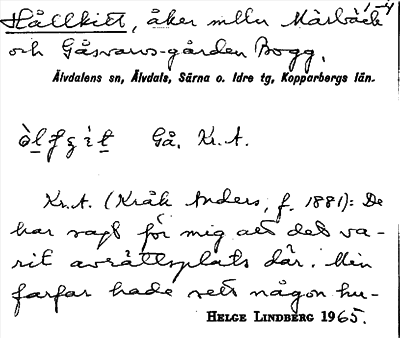 1-4
Hållkitt, åker mllu Mårbäck
och Gåsvarvs-gården Bogg,
Älvdalens sn, Älvdals, Särna o. Idre tg, Kopparbergs län.
Gå, Kr. A.
Kr. A. (Kråk Anders, f. 1881): De
har sagt för mig att det va-
rit avrättsplats där. Min
farfar hade sett någon hu-
HELGE LINDBERG 1965.